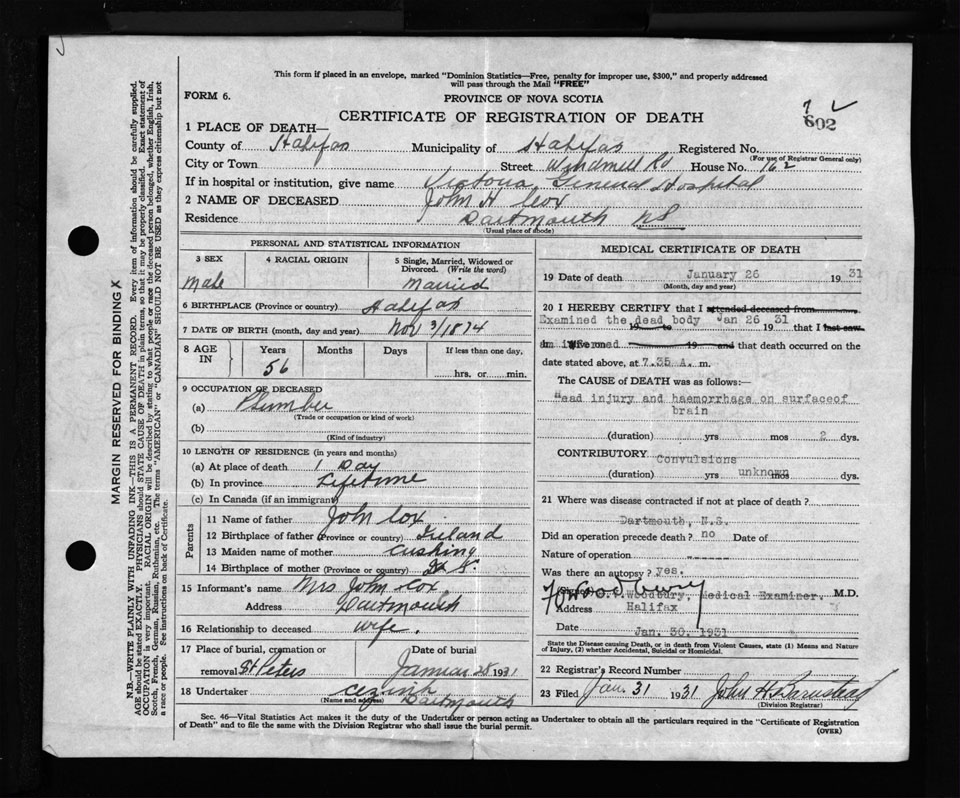 This form if placed in an envelope, marked "Dominion Statistics—Free, penalty for improper use, $300," and properly addressed
will pass through the Mail "FREE"
FORM 6.
PROVINCE OF NOVA SCOTIA
CERTIFICATE OF REGISTRATION OF DEATH
602
7
1 PLACE OF DEATH—
County of Halifax Municipality of Halifax Registered No.
(For use of Registrar General only)
City or Town Street Windmill Rd House No. 162
If in hospital or institution, give name Victoria General Hospital
2 NAME OF DECEASED John H Cox
Residence Dartmouth NS
(Usual place of abode)
PERSONAL AND STATISTICAL INFORMATION
3 SEX Male
4 RACIAL ORIGIN
5 Single, Married, Widowed or Divorced. (Write the word) Married
6 BIRTHPLACE (Province or country) Halifax
7 DATE OF BIRTH (month, day and year) Nov 3/1874
8 AGE IN Years 56 Months Days If less than one day, hrs. or min.
9 OCCUPATION OF DECEASED
(a) Plumber
(Trade or occupation or kind of work)
(b)
(Kind of industry)
10 LENGTH OF RESIDENCE (in years and months)
(a) At place of death 1 Day
(b) In province Lifetime
(c) In Canada (if an immigrant)
Parents
11 Name of father John Cox
12 Birthplace of father (Province or country) Ireland
13 Maiden name of mother Cushing
14 Birthplace of mother (Province or country)
15 Informant's name Mrs John Cox
Address Dartmouth
16 Relationship to deceased wife.
17 Place of burial, cremation or removal St Peters
Date of burial 28 1931
18 Undertaker
(Name and address) Dartmouth
MEDICAL CERTIFICATE OF DEATH
19 Date of death January 26 1931
(Month, day and year)
20 I HEREBY CERTIFY that I attended deceased from
Examined the dead body Jan 26 31 19 that I last saw
19 and that death occurred on the
date stated above, at 7.35 A. m.
The CAUSE of DEATH was as follows:—
Head injury and haemorrhage on surfaceof
brain
(duration) yrs mos 2 dys.
CONTRIBUTORY Convulsions
(duration) yrs unknown mos dys.
21 Where was disease contracted if not at place of death?
Dartmouth, N.S.
Did an operation precede death? no Date of
Nature of operation -----
Was there an autopsy? yes.
Woodbury, Medical Examiner. M.D.
Address Halifax
Date Jan. 30. 1931
State the Disease causing Death, or in death from Violent Causes, state (1) Means and Nature
of Injury, (2) whether Accidental, Suicidal or Homicidal.
22 Registrar's Record Number
23 Filed Jan. 31 1931 John H Barnstead
(Division Registrar)
Sec. 46—Vital Statistics Act makes it the duty of the Undertaker or person acting as Undertaker to obtain all the particulars required in the "Certificate of Registration
of Death" and to file the same with the Division Registrar who shall issue the burial permit.
(OVER)
MARGIN RESERVED FOR BINDING X
N.B.—WRITE PLAINLY, WITH UNFADING INK—THIS IS A PERMANENT RECORD. Every item of information should be carefully supplied.
AGE should be stated EXACTLY. PHYSICIANS should STATE CAUSE OF DEATH in plain terms, so that it may be properly classified. Exact statement of
OCCUPATION is very important. RACIAL ORIGIN will be described by stating to what people or race the deceased person belonged, whether English, Irish,
Scotch, French, German, Russian, Ruthenian, etc. The terms "AMERICAN" or "CANADIAN" SHOULD NOT BE USED as they express citizenship but not
a race or people. See instructions on back of Certificate.